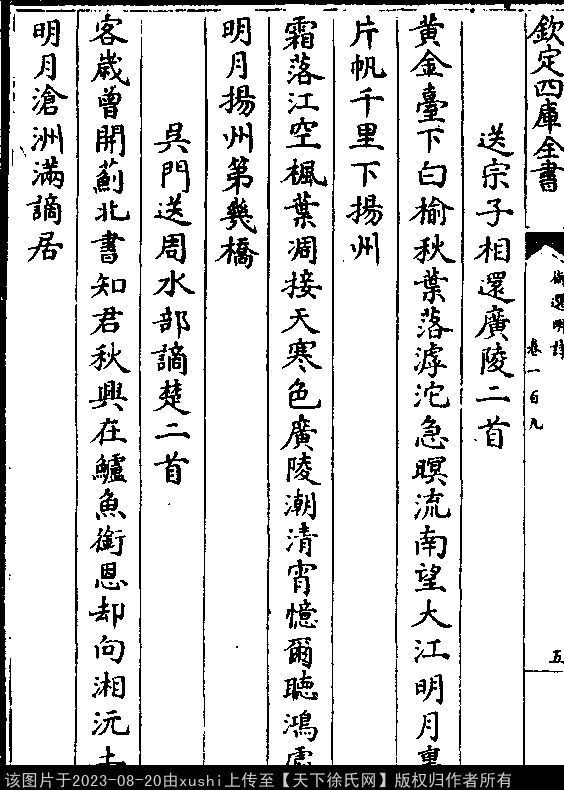 欽定四庫全書
御選明詩
卷一百九
五
送宗子相還廣陵二首
黄金臺下白榆秋葉落滹沱急暝流南望大江明月裏
片帆千里下揚州
霜落江空楓葉凋接天寒色廣陵潮清宵憶爾聴鴻處
明月揚州第幾橋
吳門送周水部謫楚二首
客歲曾開薊北書知君秋興在鱸魚銜恩却向湘沅去
明月滄洲滿謫居
该图片于2023-08-20由xushi上传至【天下徐氏网】版权归作者所有